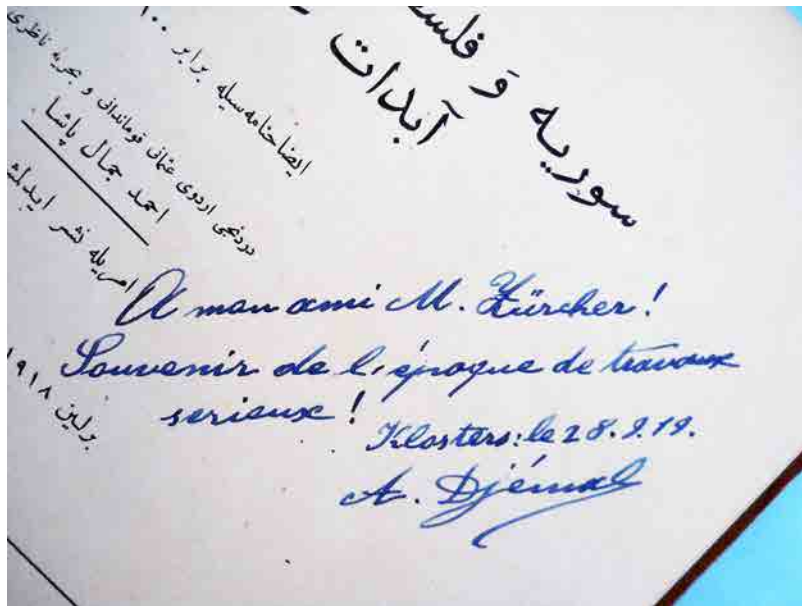 سوریه وَ فلس
آبدات
ایضاحنامه سیله برابر ۱۰۰
دردنجی اردوی عثمانی قوماندانی و بحریه ناظری
احمد جمال پاشا
امریله نشر ایدلمش
برلین ۱۹۱۸
A mon ami M. Zürcher!
Souvenir de l'époque de travaux
serieux!
Klosters: le 28.9.19.
A. Djémal